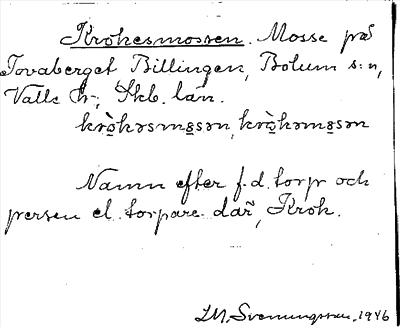 Krokesmossen. Mosse på
Tovaberget Billingen, Bolum s:n,
Valle hd, Skb. län.
krò̭kəsmo̱sən, krò̭kəmo̱sən
Namn efter f.d. torp och
person el. torpare där, Krok.
I.M. Svenungsson, 1946